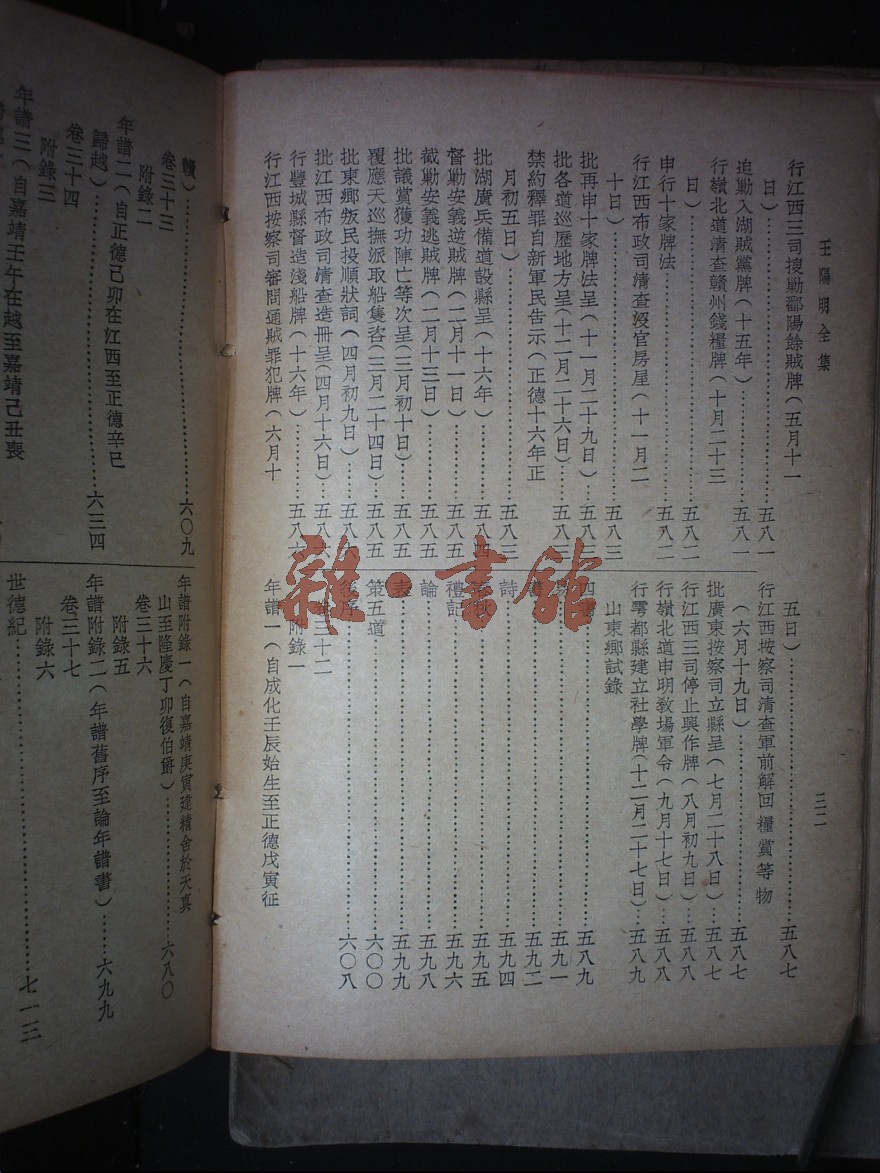 王陽明全集
三二
行江西三司搜勦鄱陽餘賊牌（五月十一
日）……五八一
追勦入湖賊黨牌（十五年）……五八一
行嶺北道清查贛州錢糧牌（十月二十三
日）……五八二
申行十家牌法……五八二
行江西布政司清查沒官房屋（十一月二
十日）……五八三
批再申十家牌法呈（十一月二十九日）……五八三
批各道巡歷地方呈（十二月二十六日）……五八三
禁約釋罪自新軍民告示（正德十六年正
月初五日）……五八三
批湖廣兵備道設縣呈（十六年）……五八四
督勦安義逆賊牌（二月十一日）……五八五
截勦安義逃賊牌（二月十三日）……五八五
批議賞獲功陣亡等次呈（三月初十日）……五八五
覆應天巡撫派取船隻咨（三月二十四日）……五八五
批東鄉叛民投順狀詞（四月初九日）……五八六
批江西布政司清查造冊呈（四月十六日）……五八六
行豐城縣督造淺船牌（十六年）……五八六
行江西按察司審問通賊罪犯牌（六月十
五日）……五八七
行江西按察司清查軍前解回糧賞等物
（六月十九日）……五八七
批廣東按察司立縣呈（七月二十八日）……五八七
行江西三司停止興作牌（八月初九日）……五八八
行嶺北道申明教場軍令（九月十七日）……五八八
行雩都縣建立社學牌（十二月二十七日）……五八九
山東鄉試錄
四書……五八九
五九一
五九二
詩……五九四
春秋……五九五
禮記……五九六
論……五九八
表……五九九
策五道……六〇〇
後序……六〇八
卷三十二
附錄一
年譜一（自成化壬辰始生至正德戊寅征
贛）……六〇九
卷三十三
附錄二
年譜二（自正德己卯在江西至正德辛巳
歸越）……六三四
卷三十四
附錄三
年譜三（自嘉靖壬午在越至嘉靖己丑喪
年譜附錄一（自嘉靖庚寅建精舍於天真
山至隆慶丁卯復伯爵）……六八〇
卷三十六
附錄五
年譜附錄二（年譜舊序至論年譜書）……六九九
卷三十七
附錄六
世德紀……七一三
雜·書館